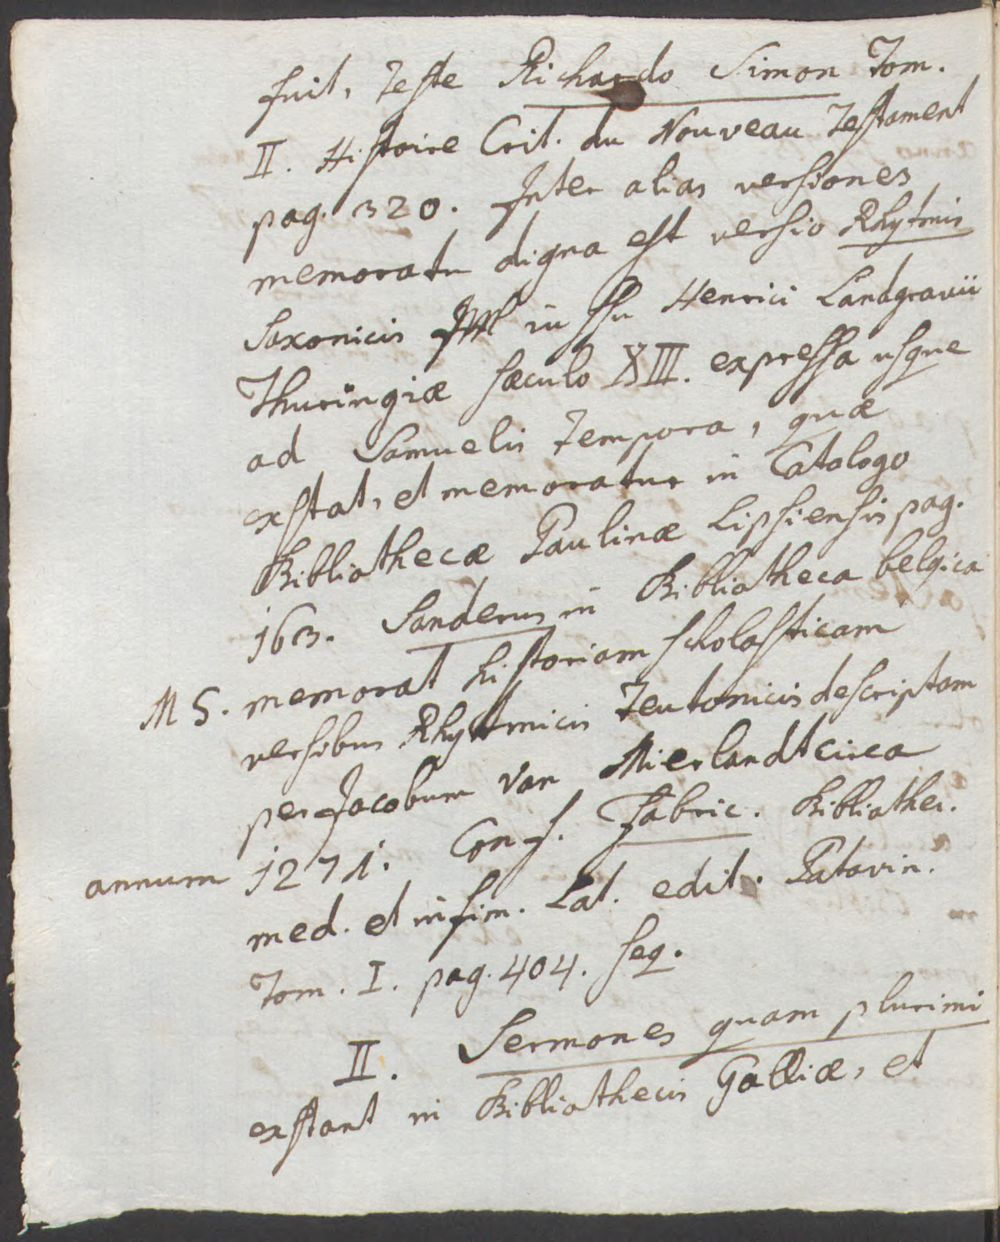 fuit, teste Richardo Simon Tom.
II. Histoire Crit. du Nouveau Testament
pag. 320. Inter alias versiones
memoratu digna est versio Rhytmis
Saxonicis in Henrici Landgravii
Thuringiæ sæculo XIII. expressa usque
ad Samuelis tempora, quæ
exstat, et memoratur in Catalogo
Bibliothecæ Paulinæ Lipsiensis pag.
163. Sanderus in Bibliotheca belgica
MS. memorat historiam scholasticam
versibus Rhytmicis Teutonicis descriptam
per Jacobum van Mierlandt circa
annum 1271. Conf. Fabric. Bibliothec.
med. et infim. Lat. edit. Patavin.
Tom. I. pag. 404. seq.
II. Sermones quam plurimi
exstant in Bibliothecis Galliæ, et